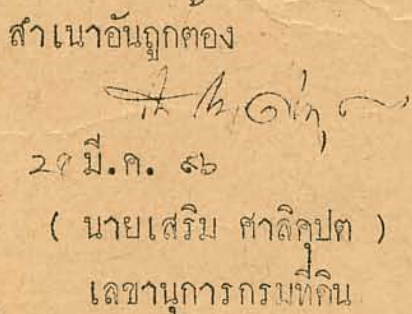 สำเนาอันถูกต้อง
มี.ค. ๙๖
( นายเสริม ศาลิคุปต )
เลขานุการกรมที่ดิน